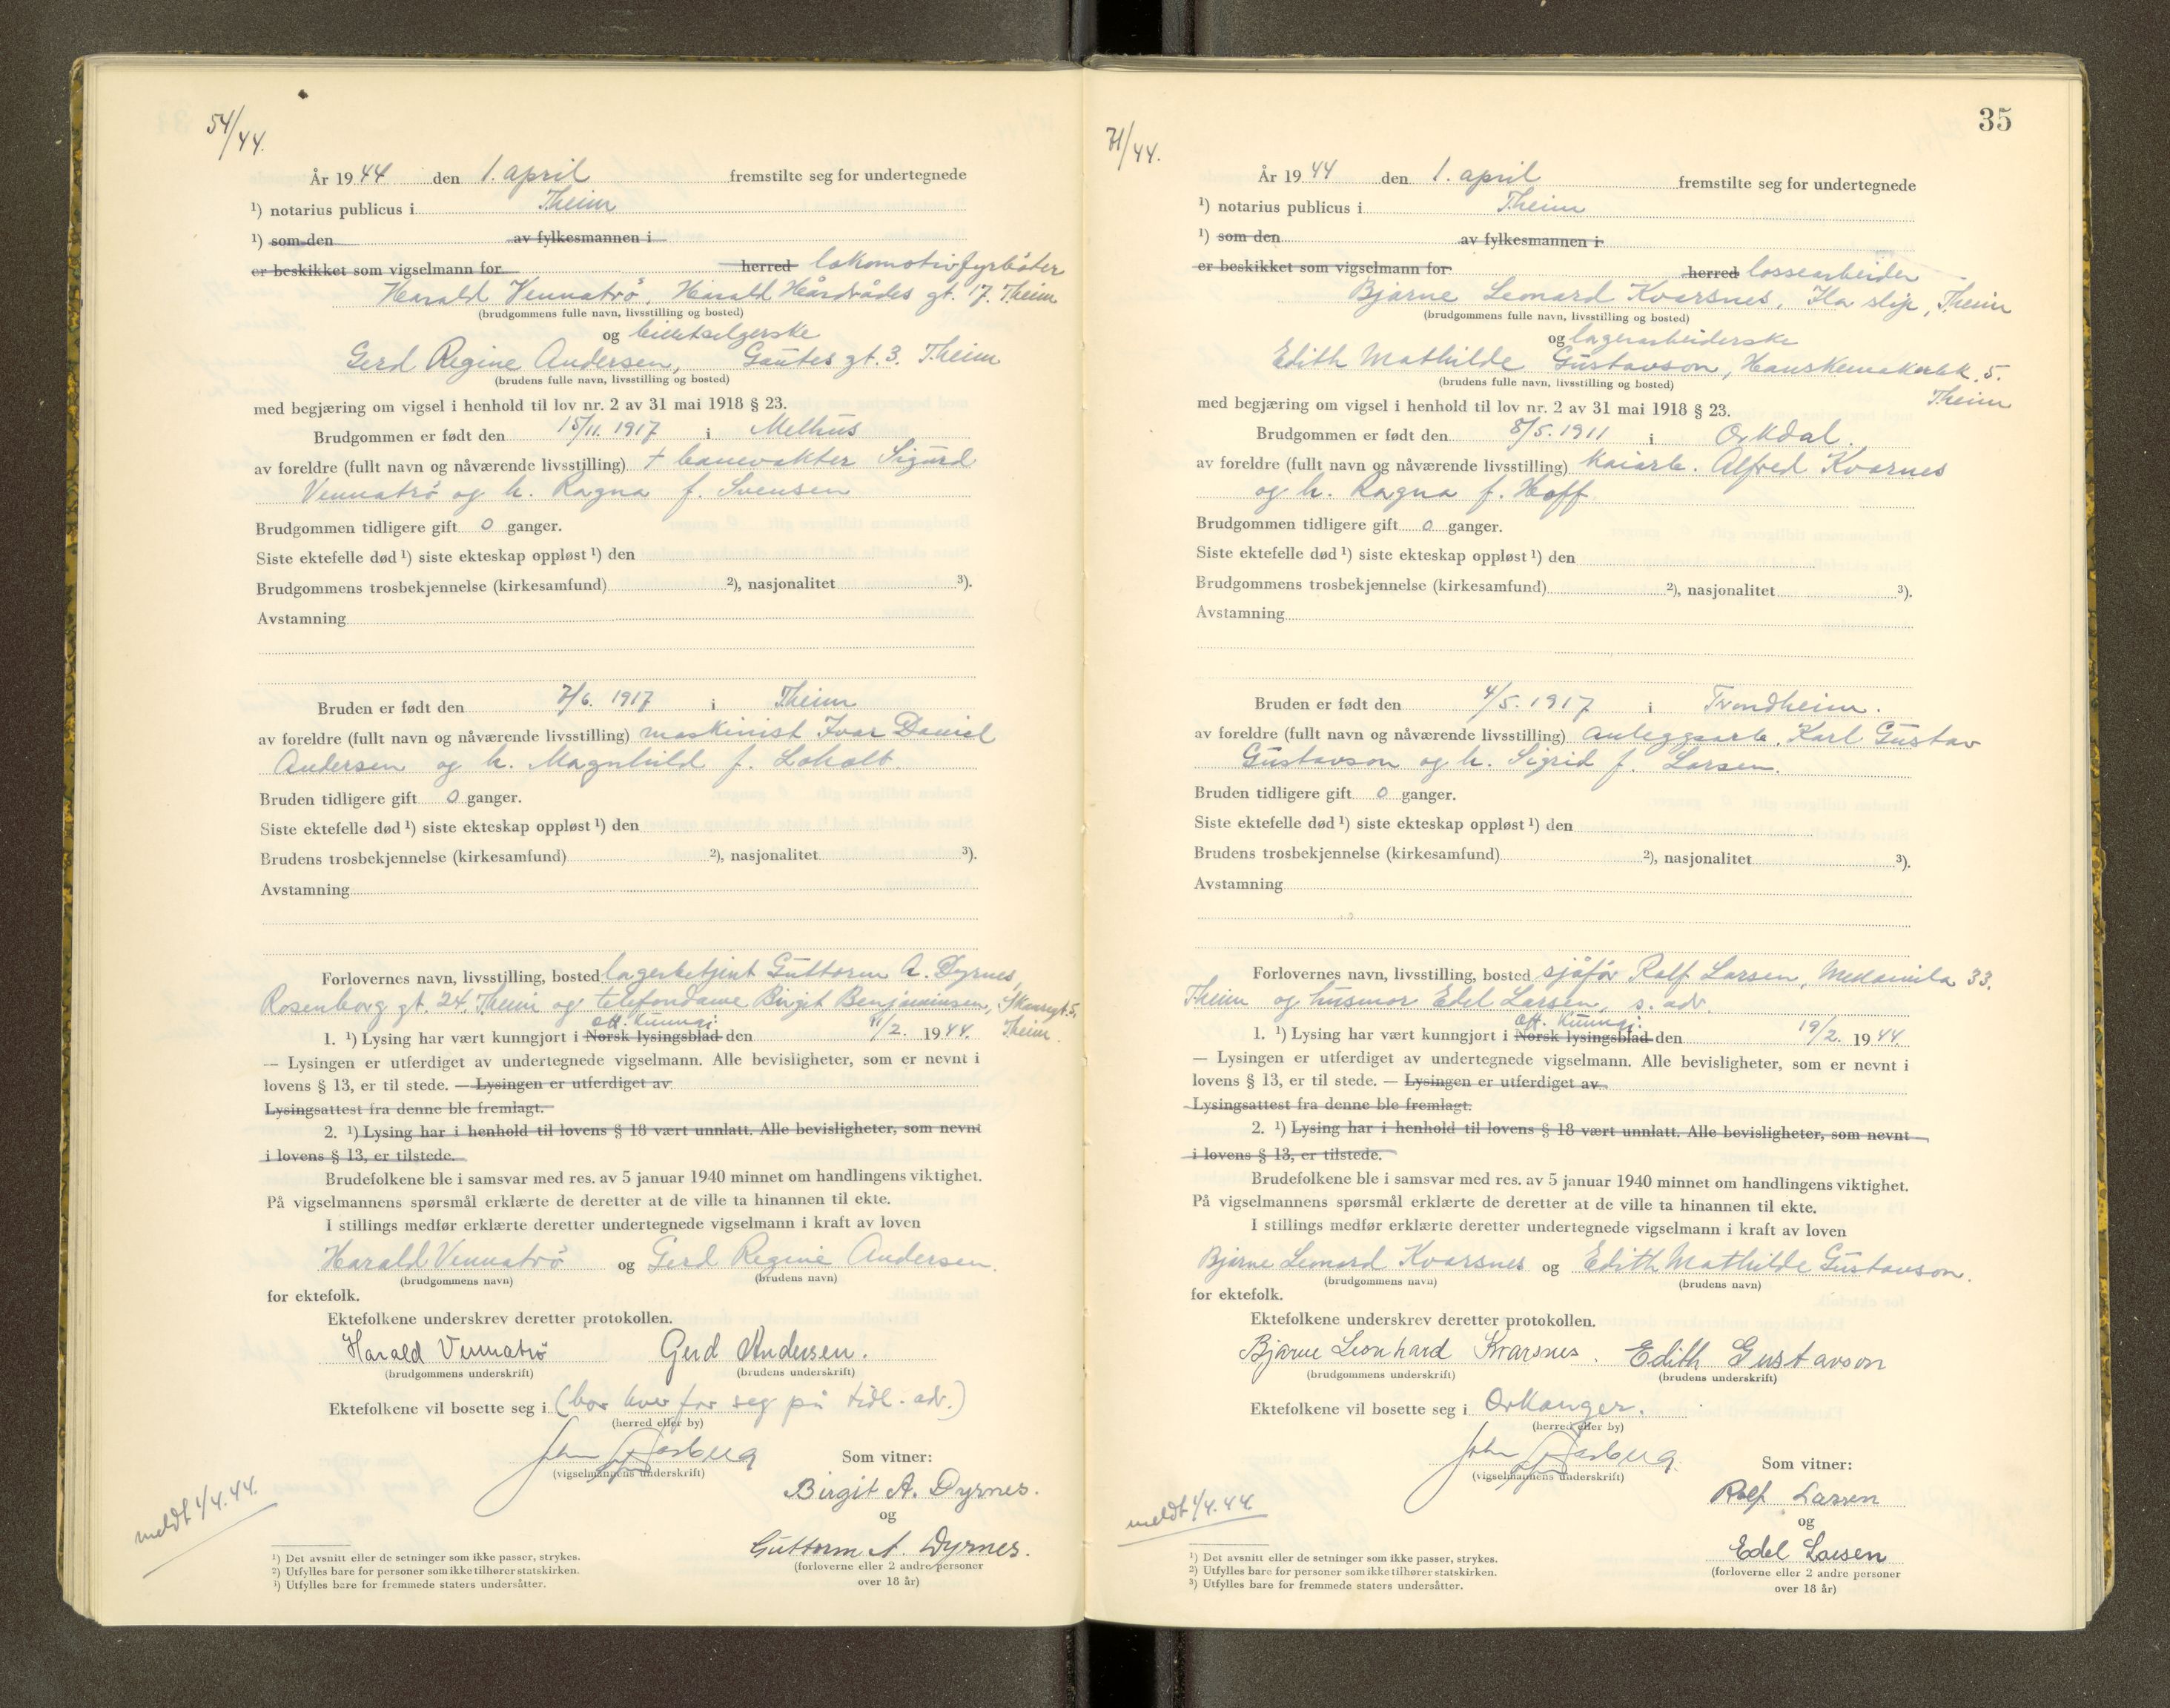 54/44.
År 1944 den 1. april fremstilte seg for undertegnede
¹) notarius publicus i Theim
¹) som den av fylkesmannen i
er beskikket som vigselmann for herred lokomotivfyrbøter
Harald Vennatrö, Harald Hårdrådes gt. 7. Theim
(brudgommens fulle navn, livsstilling og bosted)
og billettselgerske
Gerd Regine Andersen, Gautes gt. 3. Theim
(brudens fulle navn, livsstilling og bosted)
med begjæring om vigsel i henhold til lov nr. 2 av 31 mai 1918 § 23.
Brudgommen er født den 15/11. 1917 i Melhus
av foreldre (fullt navn og nåværende livsstilling) † banevokter Sigurd
Vennatrö og h. Ragna f. Svensen
Brudgommen tidligere gift 0 ganger.
Siste ektefelle død ¹) siste ekteskap oppløst ¹) den
Brudgommens trosbekjennelse (kirkesamfund) ²), nasjonalitet ³).
Avstamning
Bruden er født den 7/6. 1917 i Theim
av foreldre (fullt navn og nåværende livsstilling) maskinist Ivar Daniel
Andersen og h. Magnhild f. Loholt.
Bruden tidligere gift 0 ganger.
Siste ektefelle død ¹) siste ekteskap oppløst ¹) den
Brudens trosbekjennelse (kirkesamfund) ²), nasjonalitet ³).
Avstamning
Forlovernes navn, livsstilling, bosted lagerbetjent Guttorm A. Dyrnes,
Rosenborg gt. 24. Theim og telefondame Birgit Benjaminsen,
Theim.
off. kunngj.
1. ¹) Lysing har vært kunngjort i Norsk lysingsblad den /2. 1944.
— Lysingen er utferdiget av undertegnede vigselmann. Alle bevisligheter, som er nevnt i
lovens § 13, er til stede. — Lysingen er utferdiget av
Lysingsattest fra denne ble fremlagt.
2. ¹) Lysing har i henhold til lovens § 18 vært unnlatt. Alle bevisligheter, som nevnt
i lovens § 13, er tilstede.
Brudefolkene ble i samsvar med res. av 5 januar 1940 minnet om handlingens viktighet.
På vigselmannens spørsmål erklærte de deretter at de ville ta hinannen til ekte.
I stillings medfør erklærte deretter undertegnede vigselmann i kraft av loven
Harald Vennatrö og Gerd Regine Andersen.
(brudgommens navn) (brudens navn)
for ektefolk.
Ektefolkene underskrev deretter protokollen.
Harald Vennatrö Gerd Andersen.
(brudgommens underskrift) (brudens underskrift)
Ektefolkene vil bosette seg i (bor hver for seg på tidl. adr.)
(herred eller by)
John Aasberg
(vigselmannens underskrift)
Som vitner:
Birgit A. Dyrnes.
og
Guttorm A. Dyrnes.
(forloverne eller 2 andre personer
over 18 år)
meldt 1/4. 44.
¹) Det avsnitt eller de setninger som ikke passer, strykes.
²) Utfylles bare for personer som ikke tilhører statskirken.
³) Utfylles bare for fremmede staters undersåtter.
35
71/44.
År 1944 den 1. april fremstilte seg for undertegnede
¹) notarius publicus i Theim
¹) som den av fylkesmannen i
er beskikket som vigselmann for herred lossearbeider
Bjarne Leonard Kvarsnes, Ila slip, Theim
(brudgommens fulle navn, livsstilling og bosted)
og lagerarbeiderske
Edith Mathilde Gustavson, Hanskemakerbk. 5.
(brudens fulle navn, livsstilling og bosted)
Theim
med begjæring om vigsel i henhold til lov nr. 2 av 31 mai 1918 § 23.
Brudgommen er født den 8/5. 1911 i Orkdal.
av foreldre (fullt navn og nåværende livsstilling) kaiarb. Alfred Kvarnes
og h. Ragna f. Hoff
Brudgommen tidligere gift 0 ganger.
Siste ektefelle død ¹) siste ekteskap oppløst ¹) den
Brudgommens trosbekjennelse (kirkesamfund) ²), nasjonalitet ³).
Avstamning
Bruden er født den 4/5. 1917 i Trondheim.
av foreldre (fullt navn og nåværende livsstilling) anleggsarb. Karl Gustav
Gustavson og h. Sigrid f. Larsen.
Bruden tidligere gift 0 ganger.
Siste ektefelle død ¹) siste ekteskap oppløst ¹) den
Brudens trosbekjennelse (kirkesamfund) ²), nasjonalitet ³).
Avstamning
Forlovernes navn, livsstilling, bosted sjåfør Rolf Larsen, Mellomila 33.
Theim og husmor Edel Larsen, s. adr.
Off. kunngj.
1. ¹) Lysing har vært kunngjort i Norsk lysingsblad den 19/2. 1944.
— Lysingen er utferdiget av undertegnede vigselmann. Alle bevisligheter, som er nevnt i
lovens § 13, er til stede. — Lysingen er utferdiget av
Lysingsattest fra denne ble fremlagt.
2. ¹) Lysing har i henhold til lovens § 18 vært unnlatt. Alle bevisligheter, som nevnt
i lovens § 13, er tilstede.
Brudefolkene ble i samsvar med res. av 5 januar 1940 minnet om handlingens viktighet.
På vigselmannens spørsmål erklærte de deretter at de ville ta hinannen til ekte.
I stillings medfør erklærte deretter undertegnede vigselmann i kraft av loven
Bjarne Leonard Kvarsnes og Edith Mathilde Gustavson.
(brudgommens navn) (brudens navn)
for ektefolk.
Ektefolkene underskrev deretter protokollen.
Bjarne Leonhard Kvarsnes. Edith Gustavson
(brudgommens underskrift) (brudens underskrift)
Ektefolkene vil bosette seg i Orkanger.
(herred eller by)
John Aasberg
(vigselmannens underskrift)
Som vitner:
Rolf Larsen
og
Edel Larsen
(forloverne eller 2 andre personer
over 18 år)
meldt 1/4. 44.
¹) Det avsnitt eller de setninger som ikke passer, strykes.
²) Utfylles bare for personer som ikke tilhører statskirken.
³) Utfylles bare for fremmede staters undersåtter.